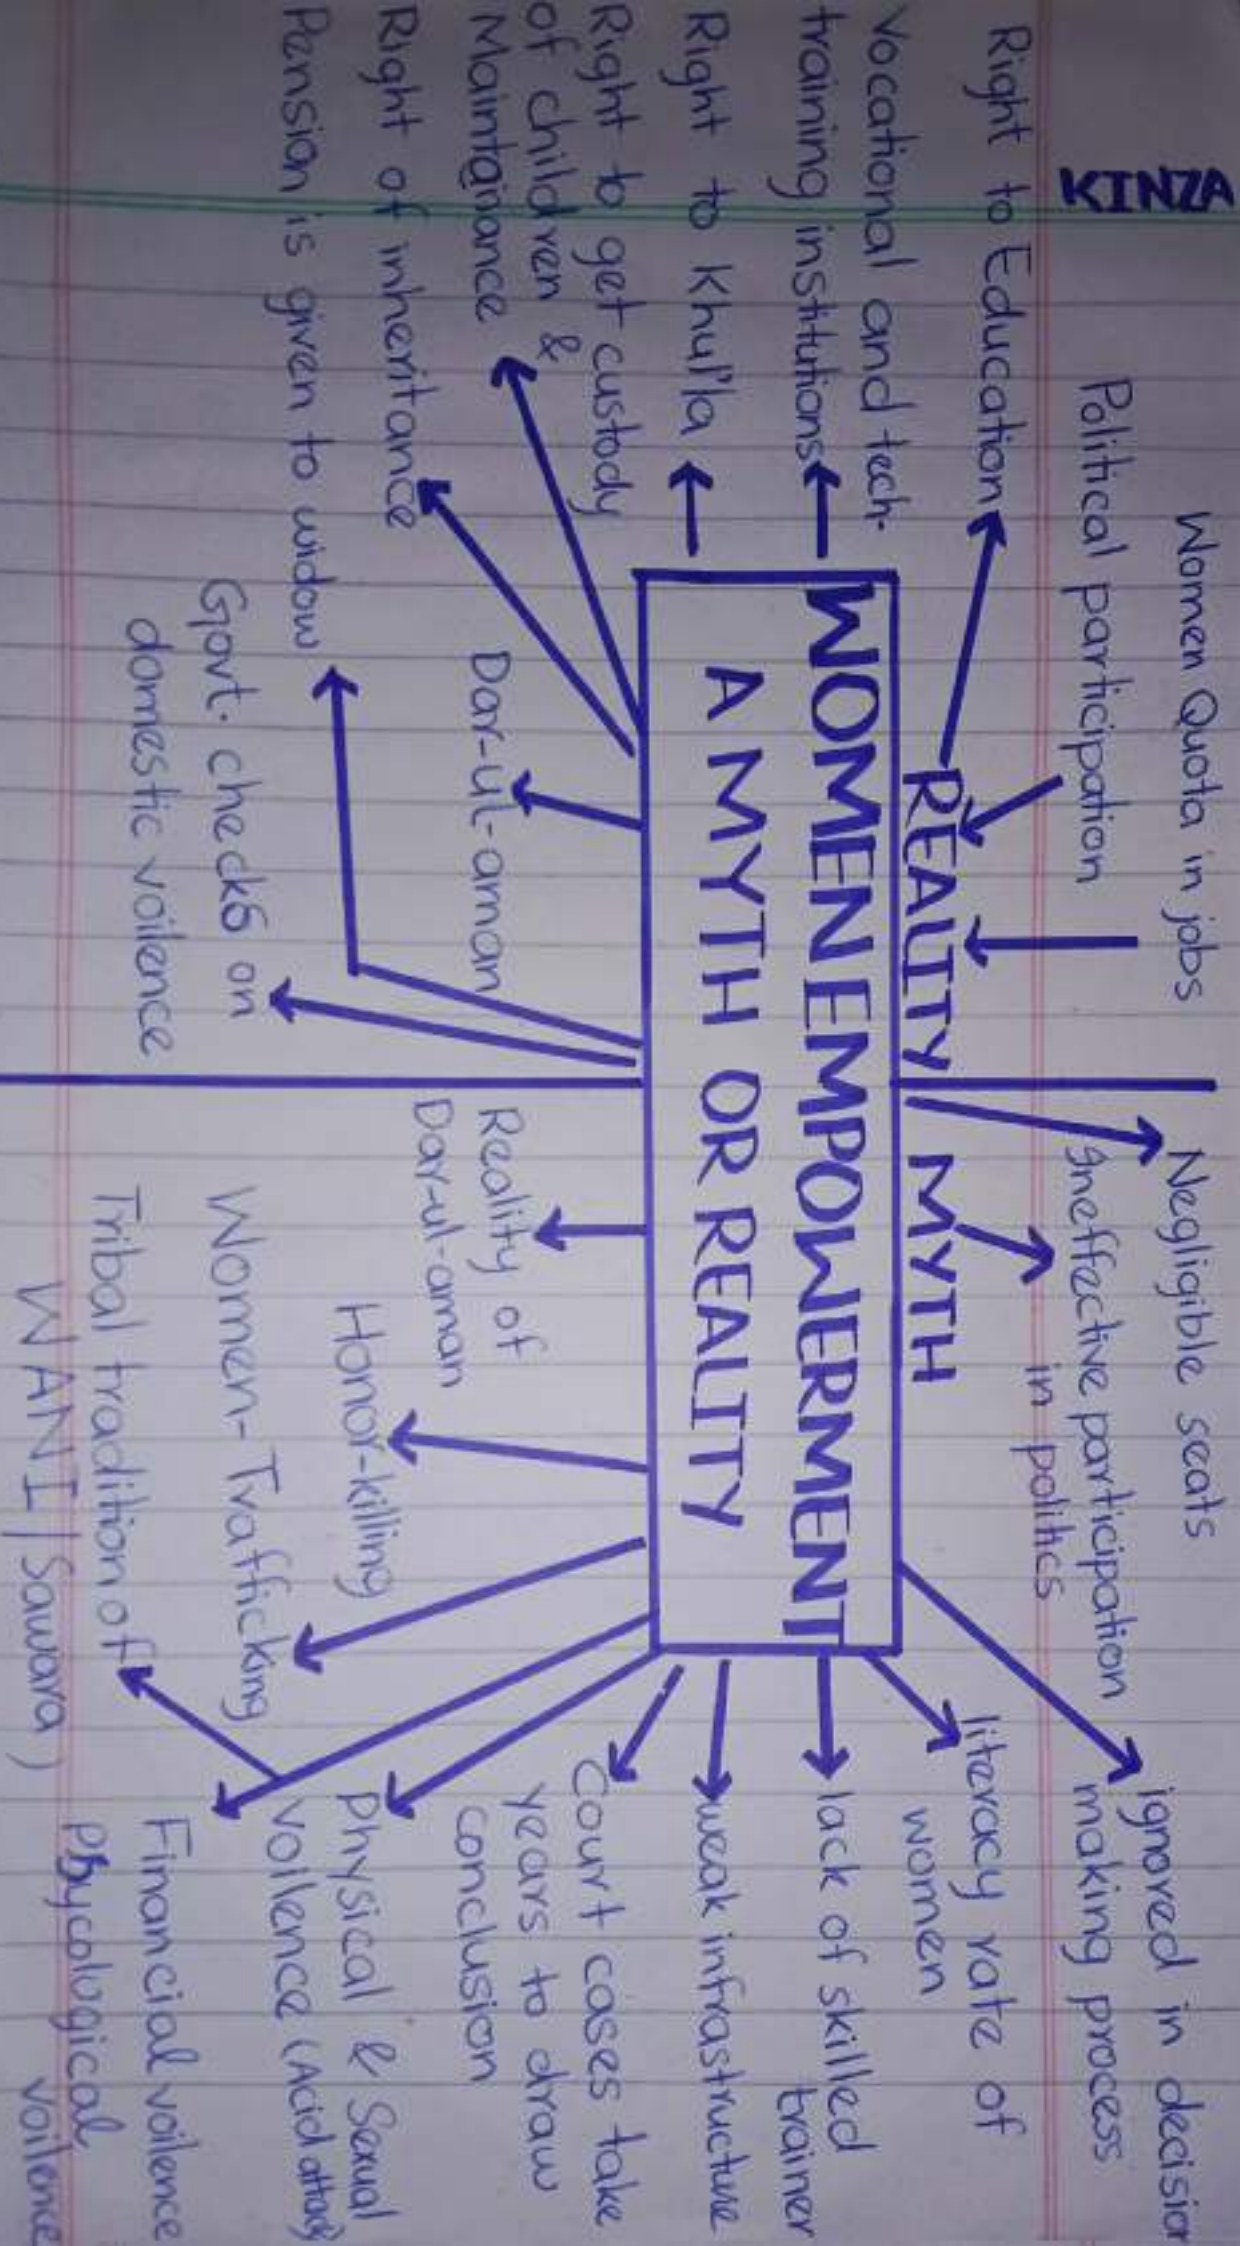 KINZA
Women Quota in jobs
Political participation
Right to Education
Vocational and tech-
training institutions
Right to Khul'la
Right to get custody
of children &
Maintainance
Right of inheritance
Pension is given to widow
Dar-ul-aman
Govt. checks on
domestic voilence
REALITY
MYTH
WOMEN EMPOWERMENT
A MYTH OR REALITY
Negligible seats
Ineffective participation
in politics
ignored in decision
making process
literacy rate of
women
lack of skilled
trainer
weak infrastructure
Court cases take
years to draw
conclusion
Physical & Sexual
voilence (Acid attack)
Financial voilence
Psycological
voilence
Reality of
Dar-ul-aman
Honor-killing
Women-Trafficking
Tribal tradition of
WANI / Sawara)